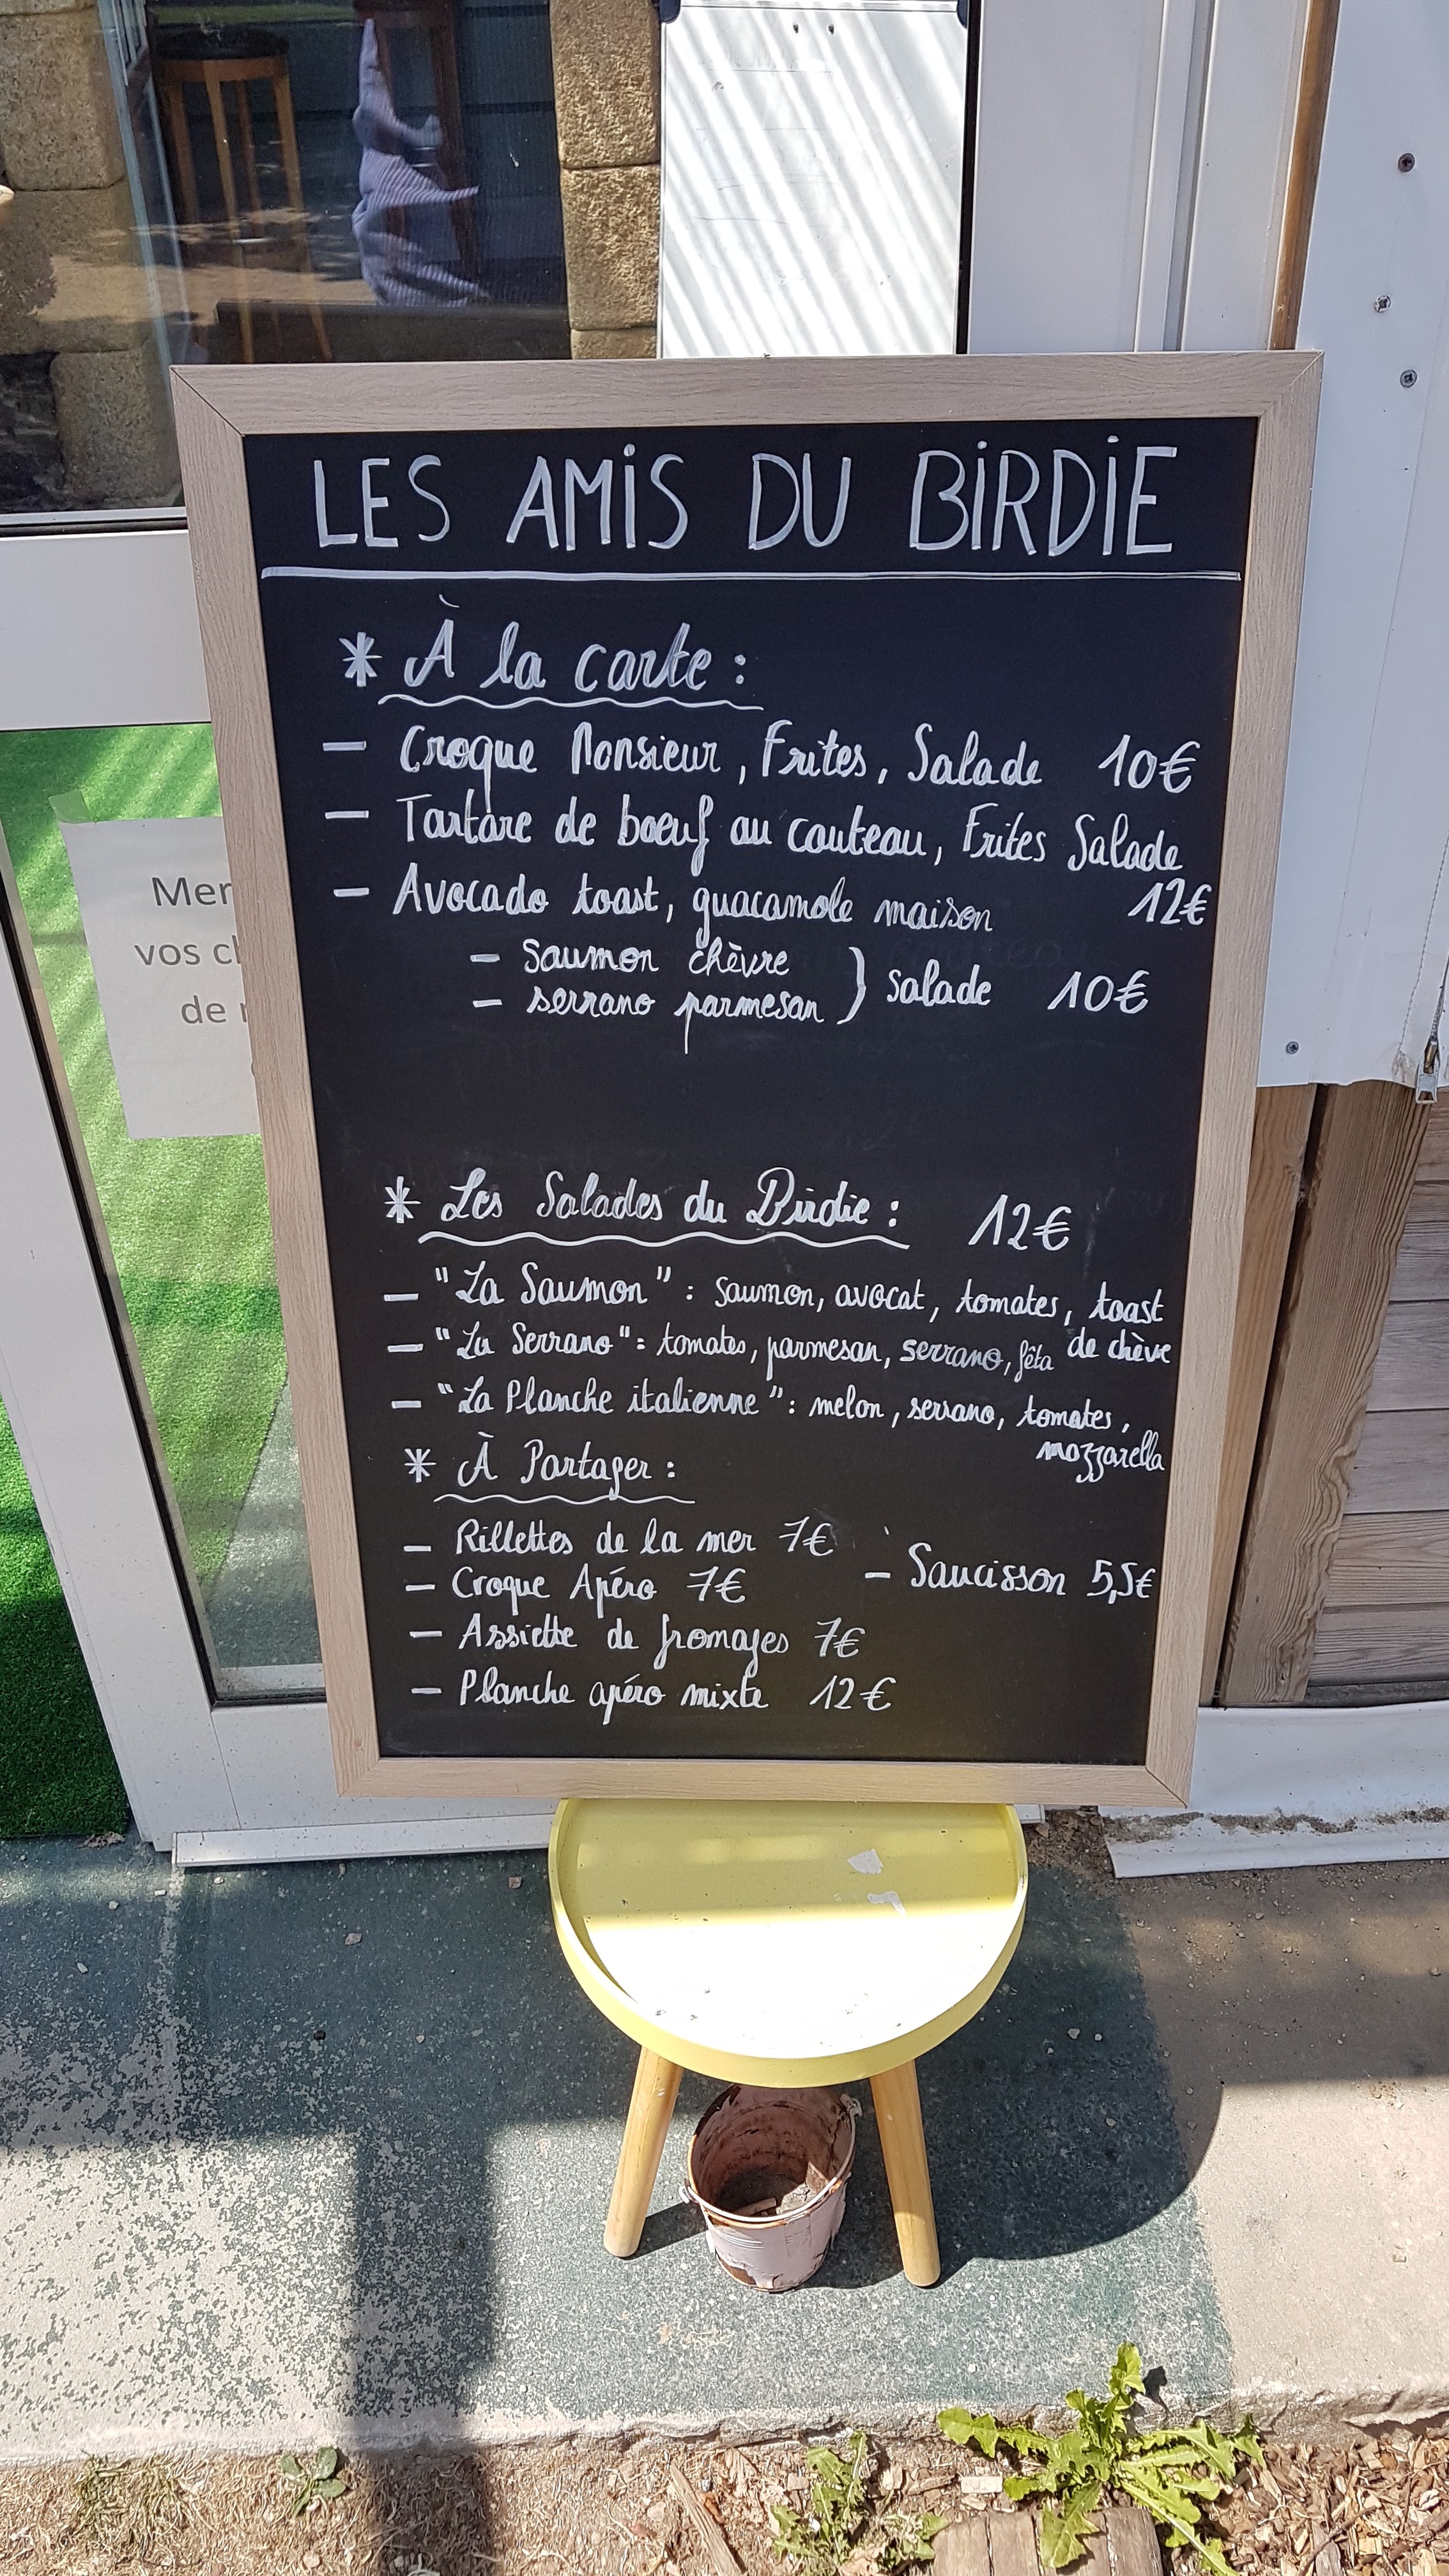 LES AMiS DU BiRDiE
* À la carte :
- Croque Monsieur, Frites, Salade 10€
- Tartare de boeuf au couteau, Frites Salade
12€
- Avocado toast, guacamole maison
- saumon chèvre
- serrano parmesan ) salade 10€
* Les Salades du Birdie : 12€
- "La Saumon" : saumon, avocat, tomates, toast
de chèvre
- "La Serrano" : tomates, parmesan, serrano, fêta
- "La Planche italienne" : melon, serrano, tomates,
mozzarella
* À Partager :
- Rillettes de la mer 7€
- Croque Apéro 7€
- Saucisson 5,5€
- Assiette de fromages 7€
- Planche apéro mixte 12€
Mer
vos c
de